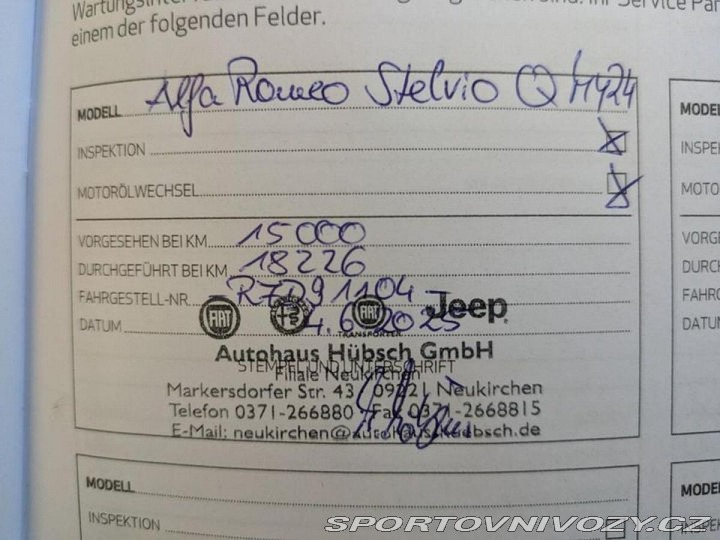 einem der folgenden Felder.
MODELL Alfa Romeo Stelvio Q MY24
INSPEKTION
MOTORÖLWECHSEL
VORGESEHEN BEI KM 15000
DURCHGEFÜHRT BEI KM 18226
FAHRGESTELL-NR. R7D91104
DATUM 4.6.2025
FIAT
FIAT
TRANSPORTER
Jeep
Autohaus Hübsch GmbH
STEMPEL UND UNTERSCHRIFT
Filiale Neukirchen
Markersdorfer Str. 43 / 09221 Neukirchen
Telefon 0371-266880 - Fax 0371-2668815
E-Mail: neukirchen@autohaus-huebsch.de
MODELL
INSPEKTION
SPORTOVNIVOZY.CZ